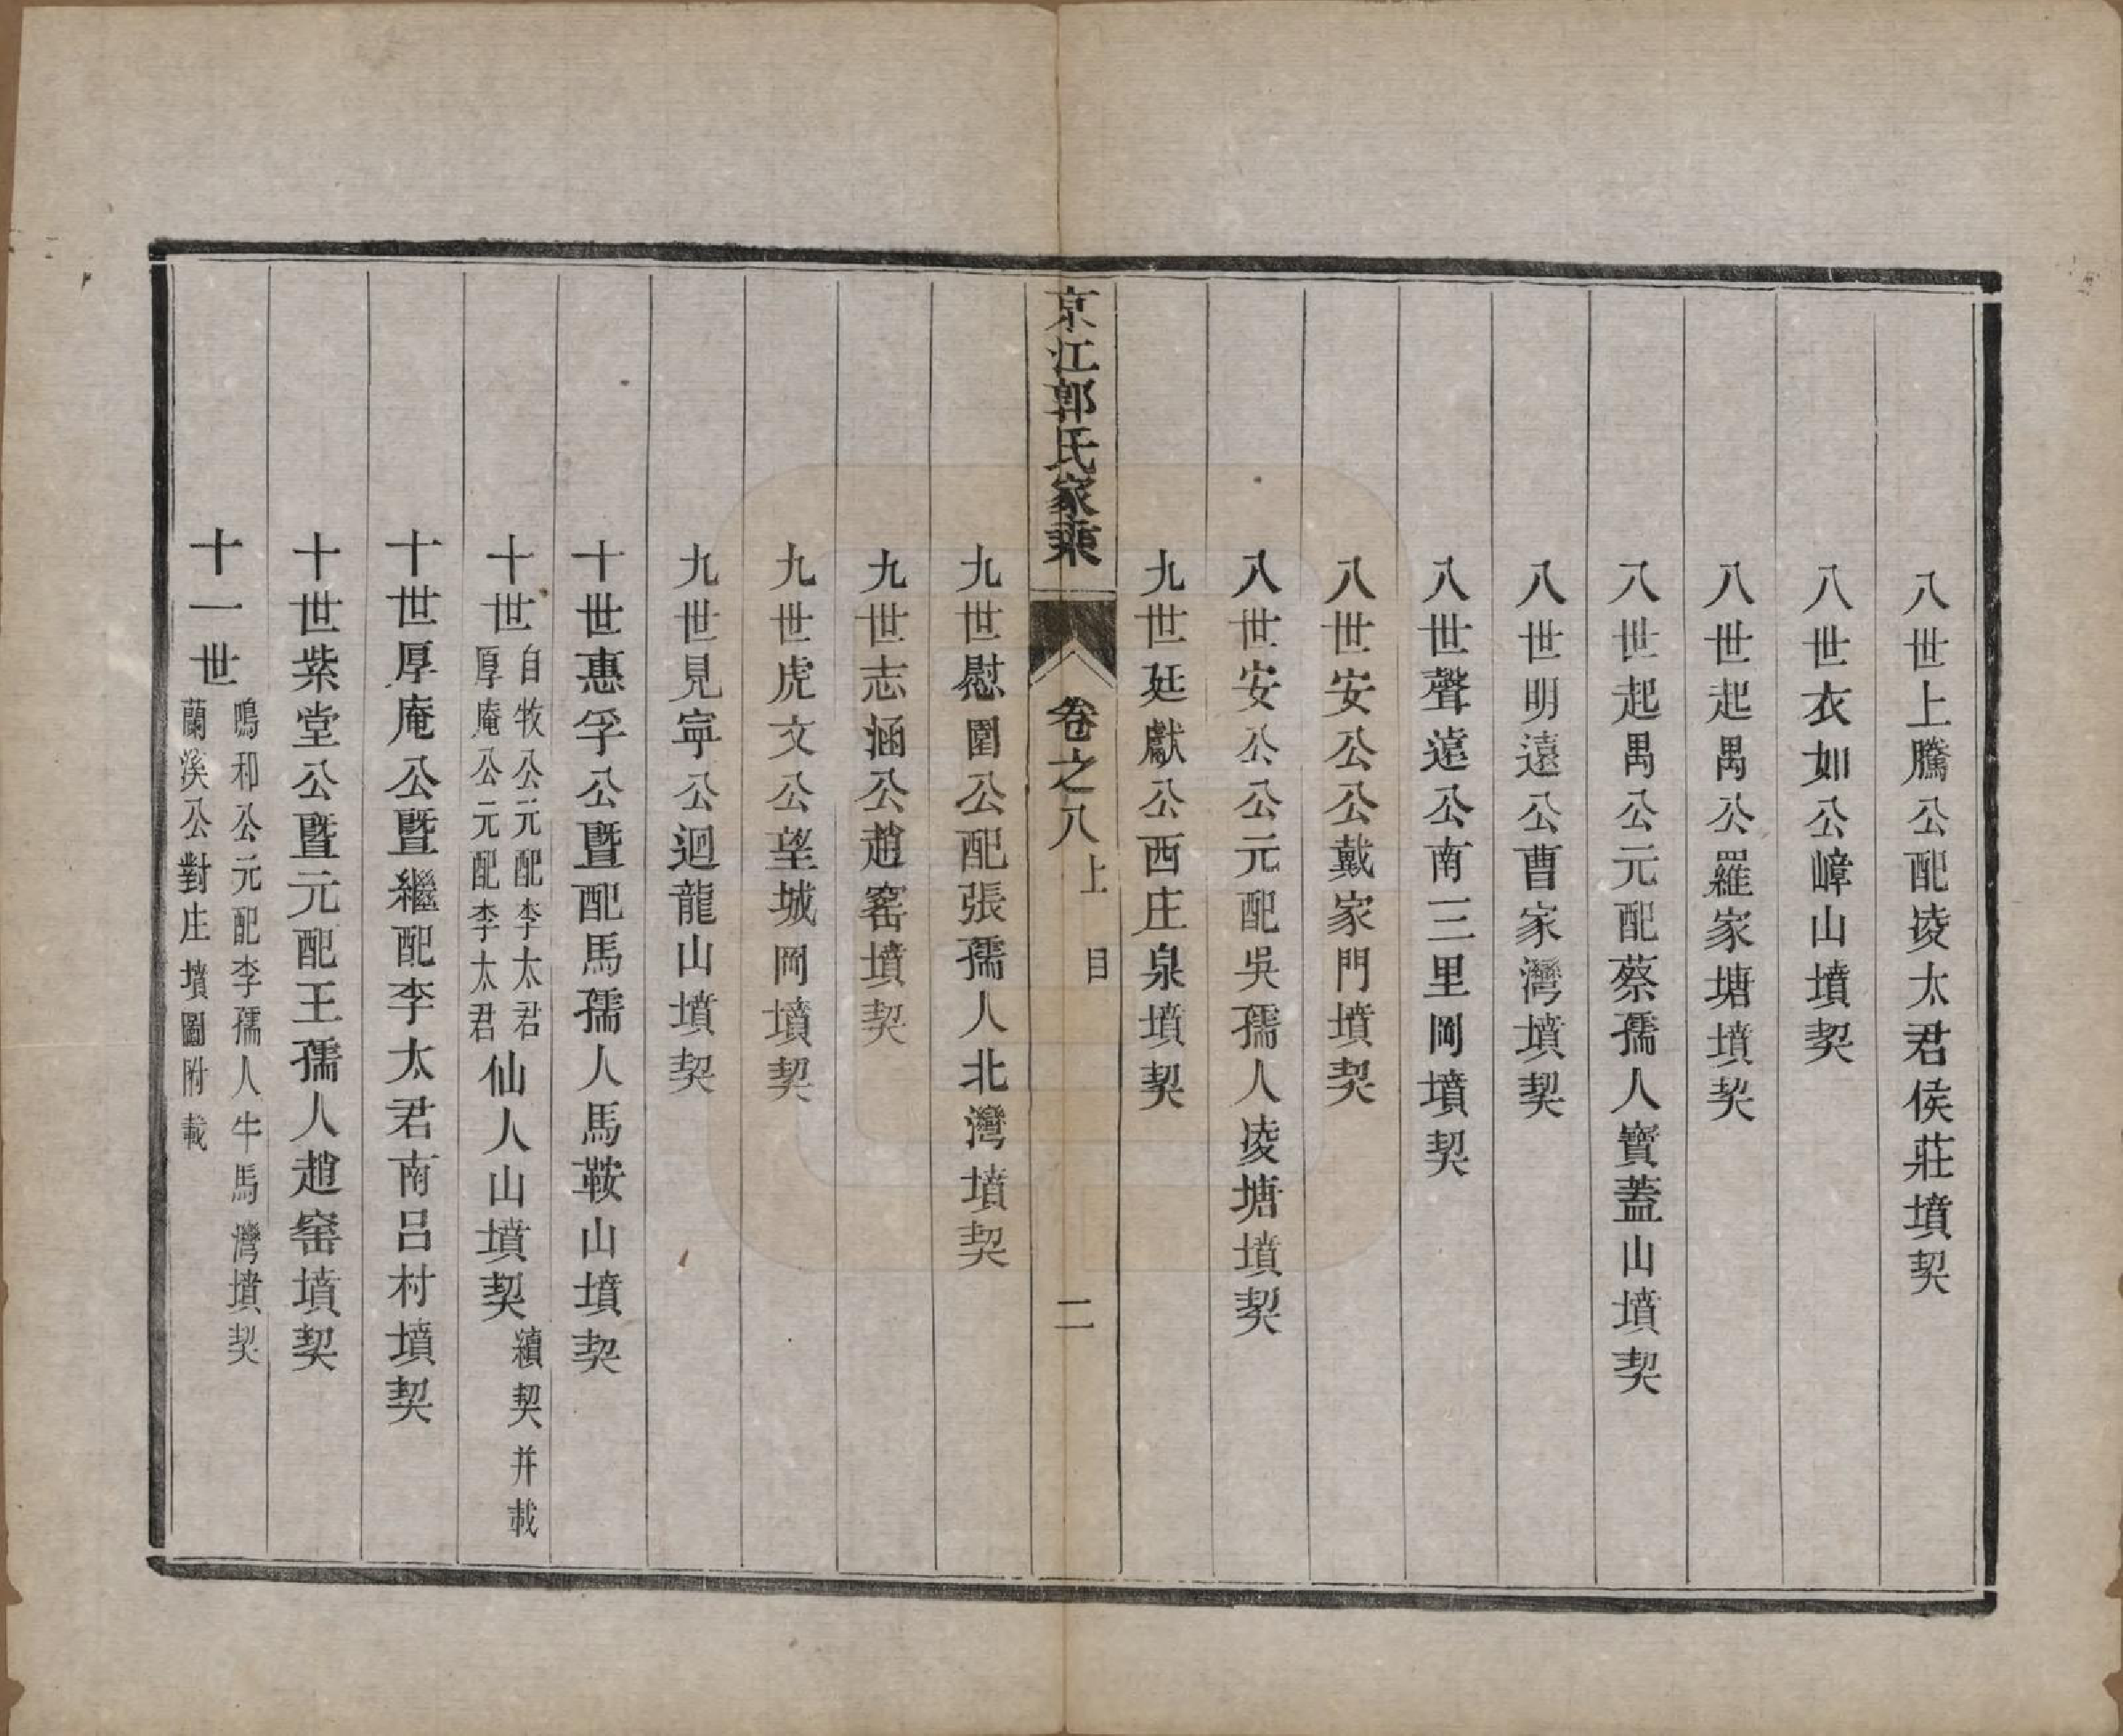 八世上騰公配凌太君侯莊墳契
八世衣如公嶂山墳契
八世起禺公羅家塘墳契
八世起禺公元配蔡孺人寶蓋山墳契
八世明遠公曹家灣墳契
八世聲遠公南三里岡墳契
八世安公公戴家門墳契
八世安公公元配吳孺人凌塘墳契
九世廷獻公西庄泉墳契
京江郭氏家乘 卷之八上 目 二
九世慰圍公配張孺人北灣墳契
九世志涵公趙窰墳契
九世虎文公望城岡墳契
九世見寧公迴龍山墳契
十世惠孚公暨配馬孺人馬鞍山墳契
十世自牧公元配李太君厚庵公元配李太君仙人山墳契續契并載
十世厚庵公暨繼配李太君南呂村墳契
十世紫堂公暨元配王孺人趙窰墳契
十一世鳴和公元配李孺人牛馬灣墳契蘭溪公對庄墳圖附載